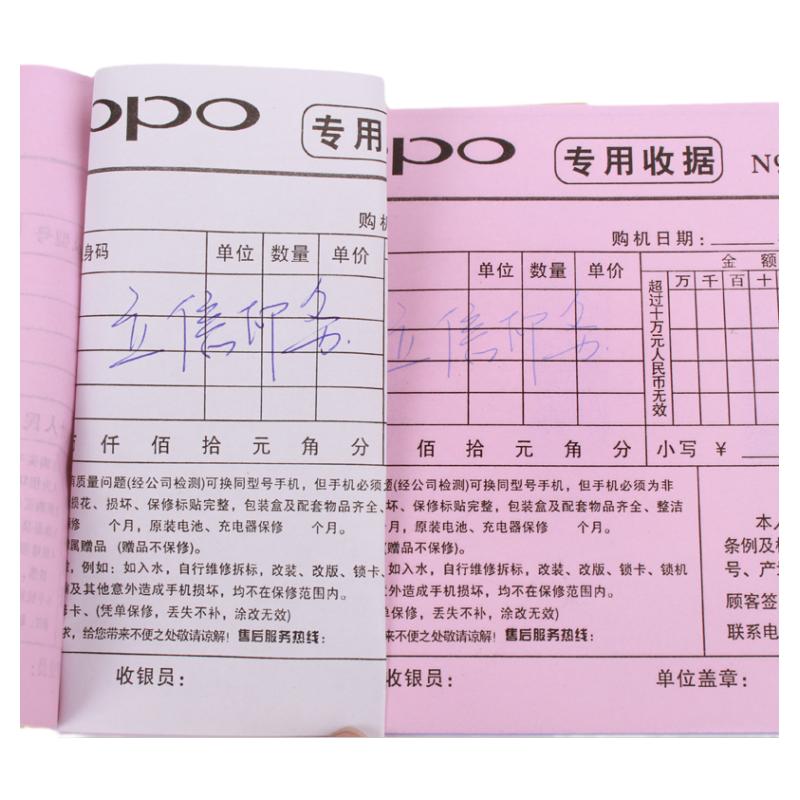 oppo 专用
购机
身码 单位 数量 单价
立信印务
仟 佰 拾 元 角 分
质量问题(经公司检测)可换同型号手机，但手机必须
损花、损坏、保修标贴完整，包装盒及配套物品齐全、
修 个月，原装电池、充电器保修 个月。
属赠品 (赠品不保修)。
，例如：如入水，自行维修拆标，改装、改版、锁卡、
及其他意外造成手机损坏，均不在保修范围内。
卡、(凭单保修，丢失不补，涂改无效)
求，给您带来不便之处敬请谅解！售后服务热线：
收银员：
ppo 专用收据 N9
购机日期：
单位 数量 单价 金 额
超过十万元人民币无效 万 千 百 十
立信印务
佰 拾 元 角 分 小写 ¥
题(经公司检测)可换同型号手机，但手机必须为非
坏、保修标贴完整，包装盒及配套物品齐全、整洁
个月，原装电池、充电器保修 个月。
(赠品不保修)。
如：如入水，自行维修拆标，改装、改版、锁卡、锁机
意外造成手机损坏，均不在保修范围内。
(凭单保修，丢失不补，涂改无效)
带来不便之处敬请谅解！售后服务热线：
收银员： 单位盖章：
本人
条例及
号、产
顾客签
联系电